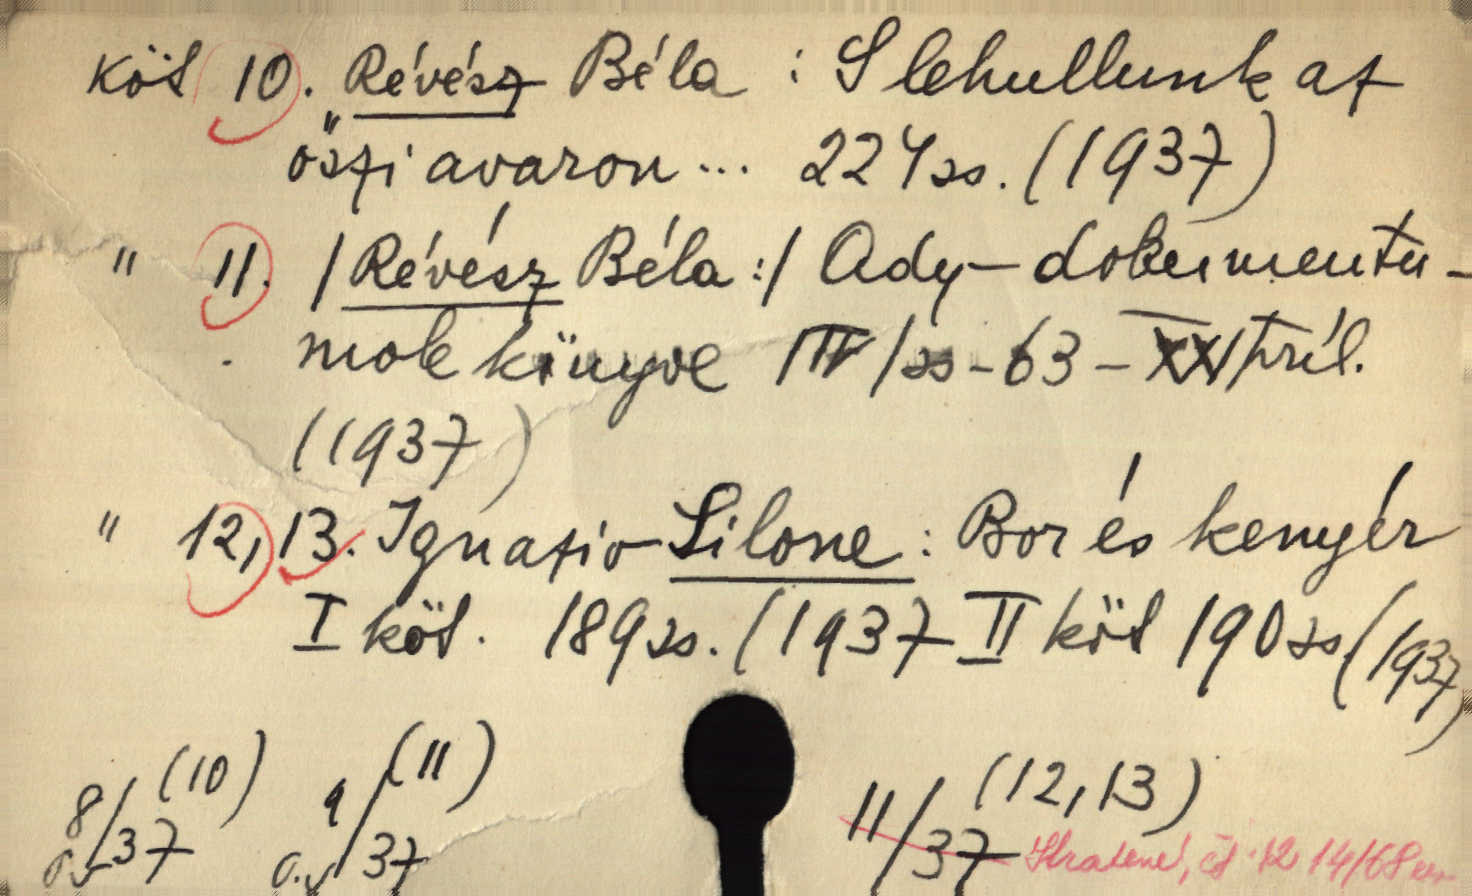 köt 10. Révész Béla : S lehullunk az
őszi avaron ... 224 ss. (1937)
" 11. /Révész Béla :/ Ady-dokumentu-
mok könyve /IV/ ss - 63 - XXI príl.
(1937)
" 12, 13. Ignazio Silone : Bor és kenyér
I köt. 189 ss. (1937 II köt 190 ss (1937)
(10) (11) (12, 13)
8/37 9/37 11/37 Stratené, čś 12 14/68